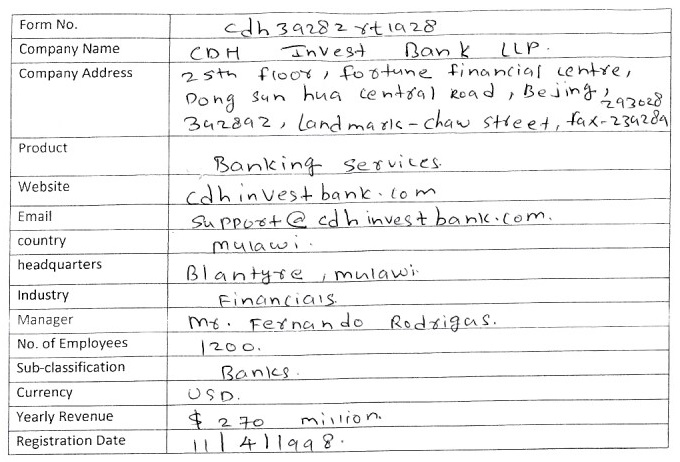 Form No. cdh39282rt1928
Company Name CDH Invest Bank LLP.
Company Address 25th floor, fortune financial centre,
Dong sun hua central road, Bejing,
293028
392892, Landmark-chaw street, fax-239289
Product Banking services.
Website cdhinvestbank.com
Email support@cdhinvestbank.com.
country mulawi.
headquarters Blantyre, mulawi.
Industry Financials.
Manager Mr. Fernando Rodrigas.
No. of Employees 1200.
Sub-classification Banks.
Currency USD.
Yearly Revenue $270 million.
Registration Date 11/4/1998.